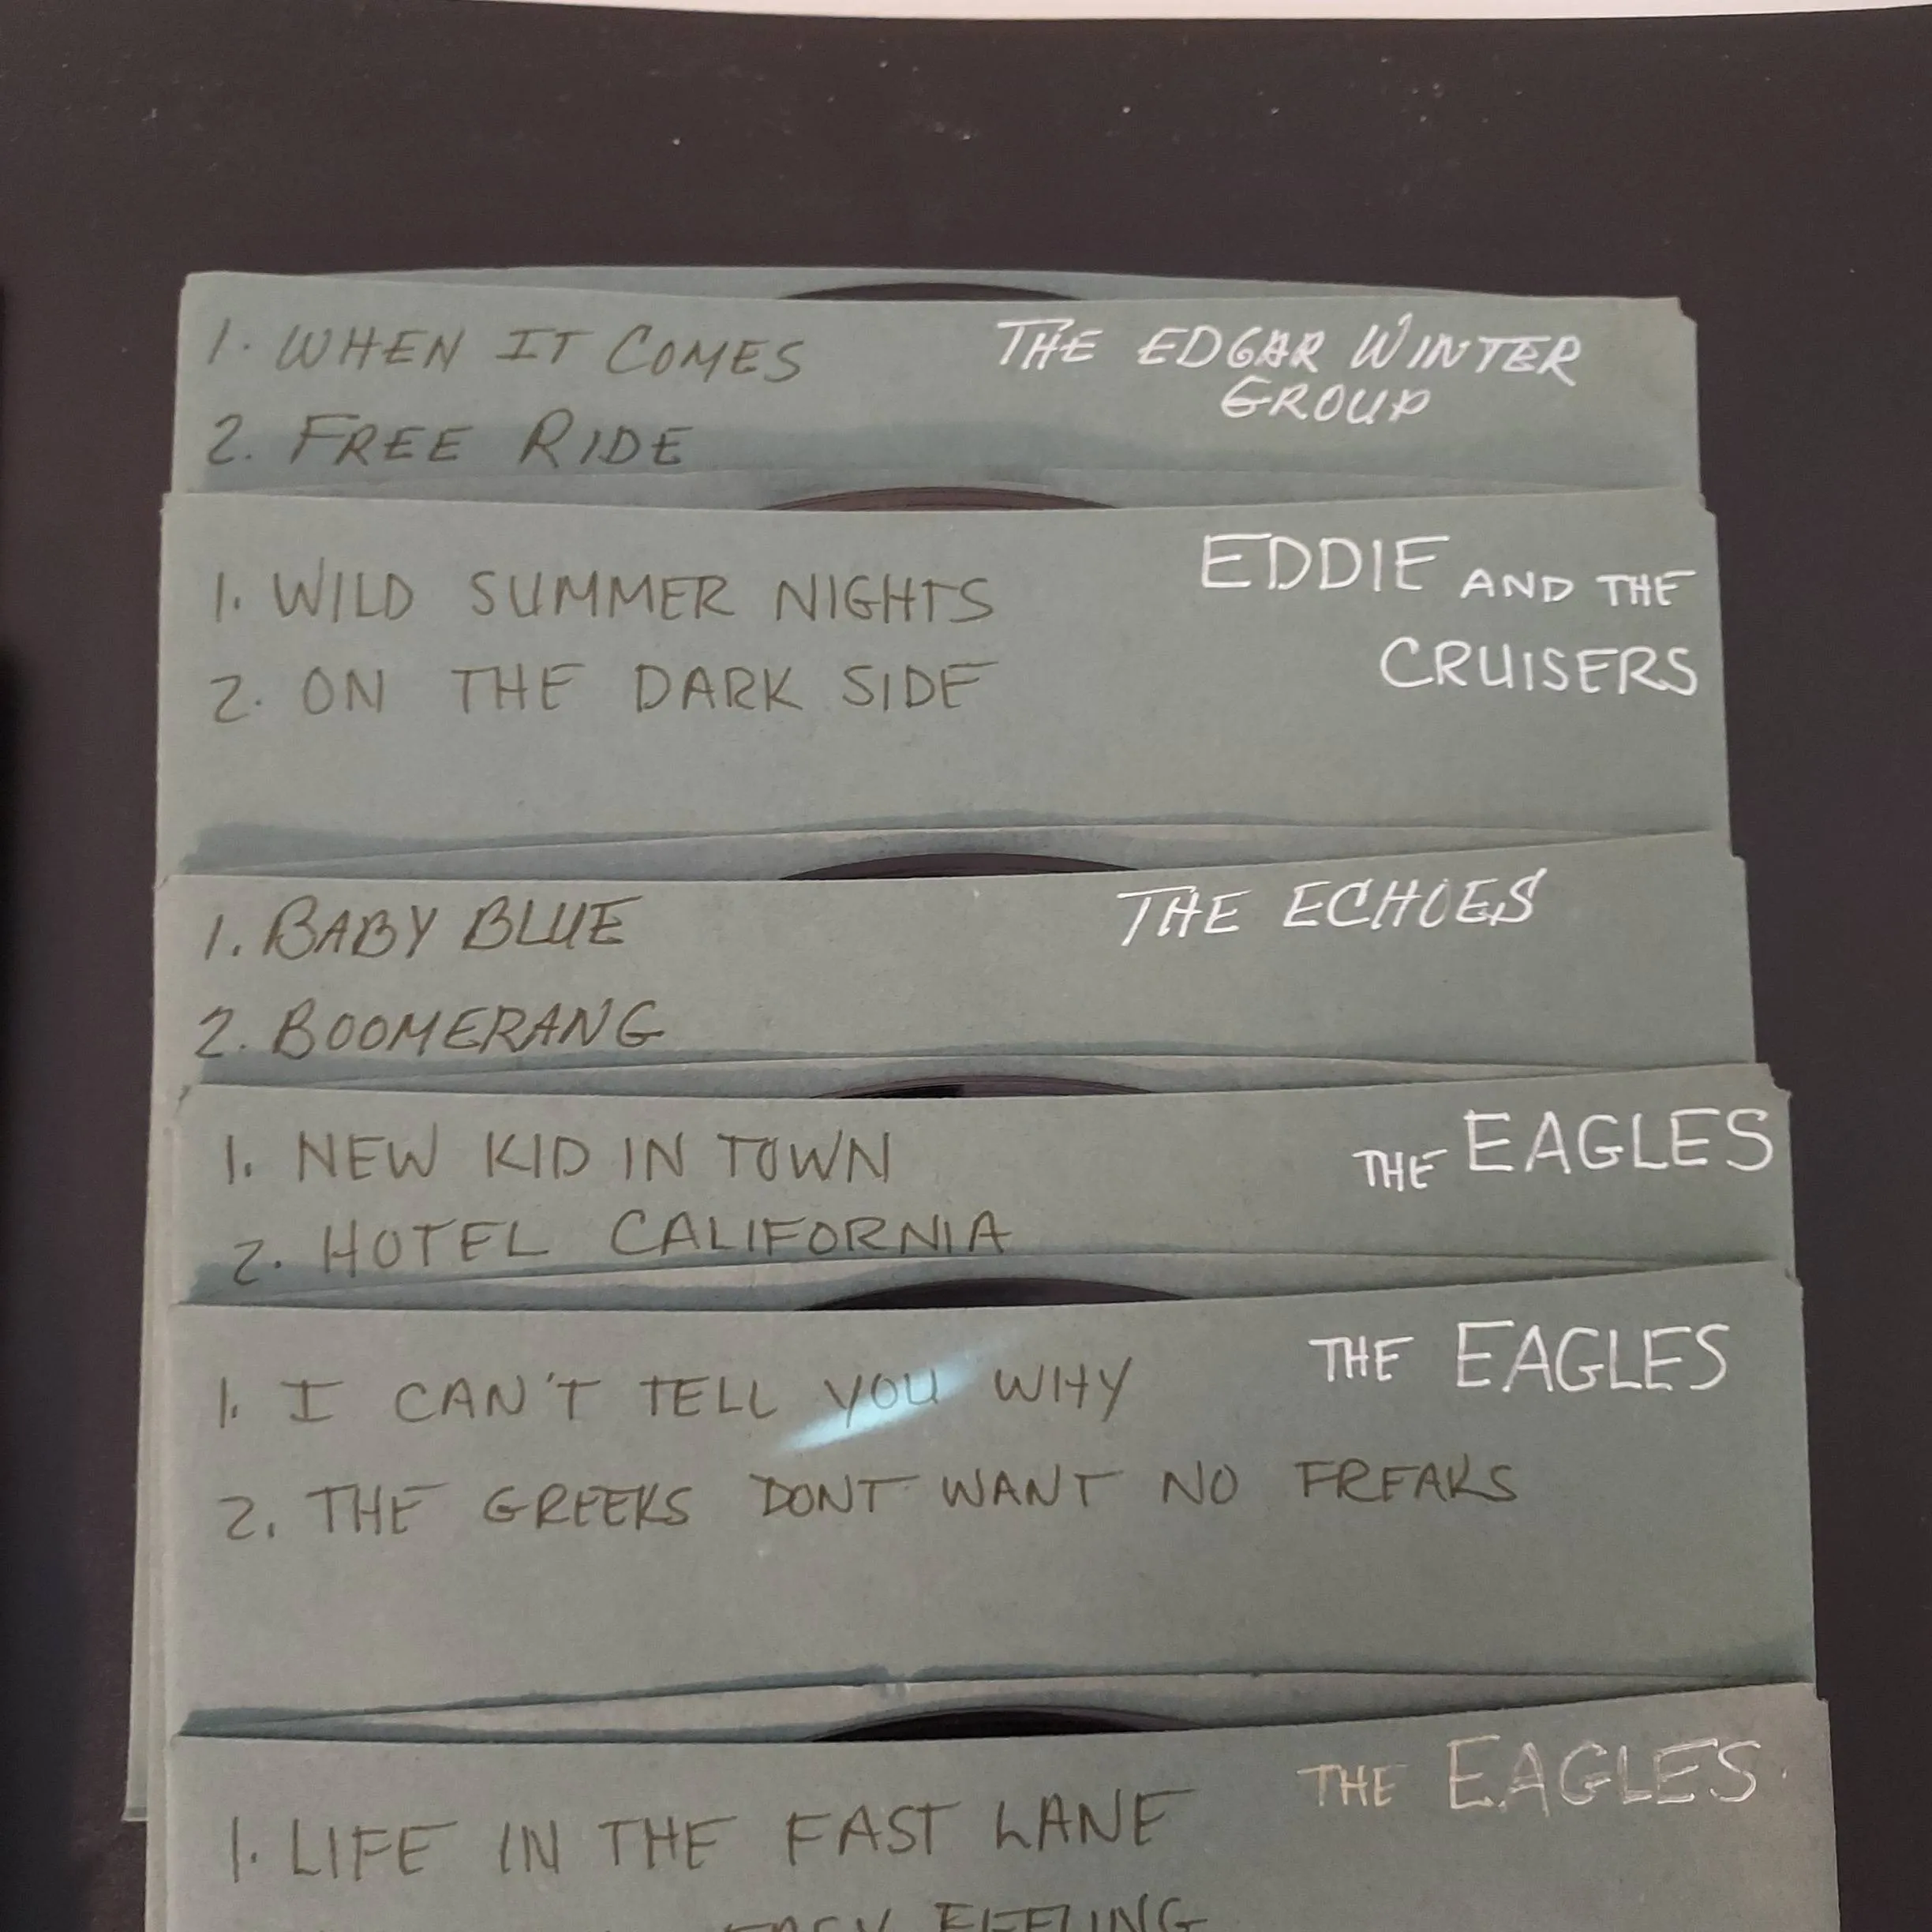 1. WHEN IT COMES
THE EDGAR WINTER
GROUP
2. FREE RIDE
1. WILD SUMMER NIGHTS
EDDIE AND THE
CRUISERS
2. ON THE DARK SIDE
1. BABY BLUE
THE ECHOES
2. BOOMERANG
1. NEW KID IN TOWN
THE EAGLES
2. HOTEL CALIFORNIA
THE EAGLES
1. I CAN'T TELL YOU WHY
2. THE GREEKS DONT WANT NO FREAKS
THE EAGLES
1. LIFE IN THE FAST LANE
EASY FEELING